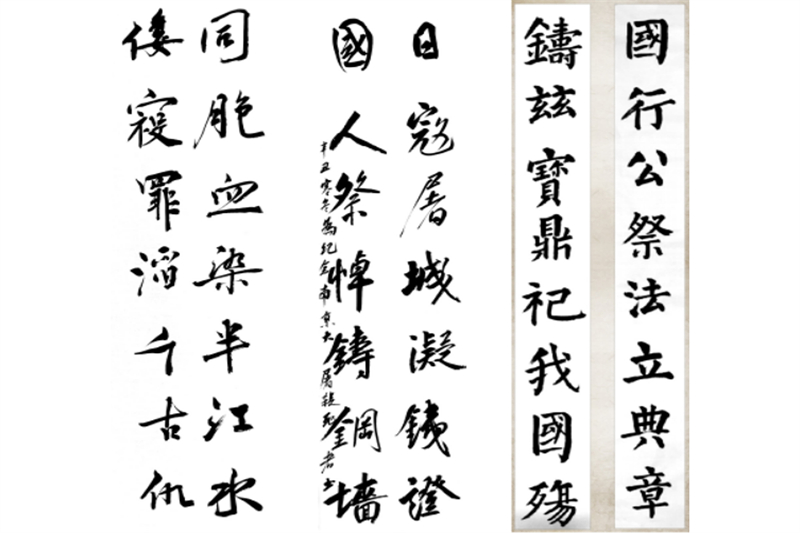 國行公祭法立典章
鑄兹寶鼎祀我國殤
日寇屠城凝鐵證
國人祭悼鑄鋼墻
辛丑寒冬為紀念南京大屠殺死者書
同胞血染半江水
倭寇罪滔千古仇